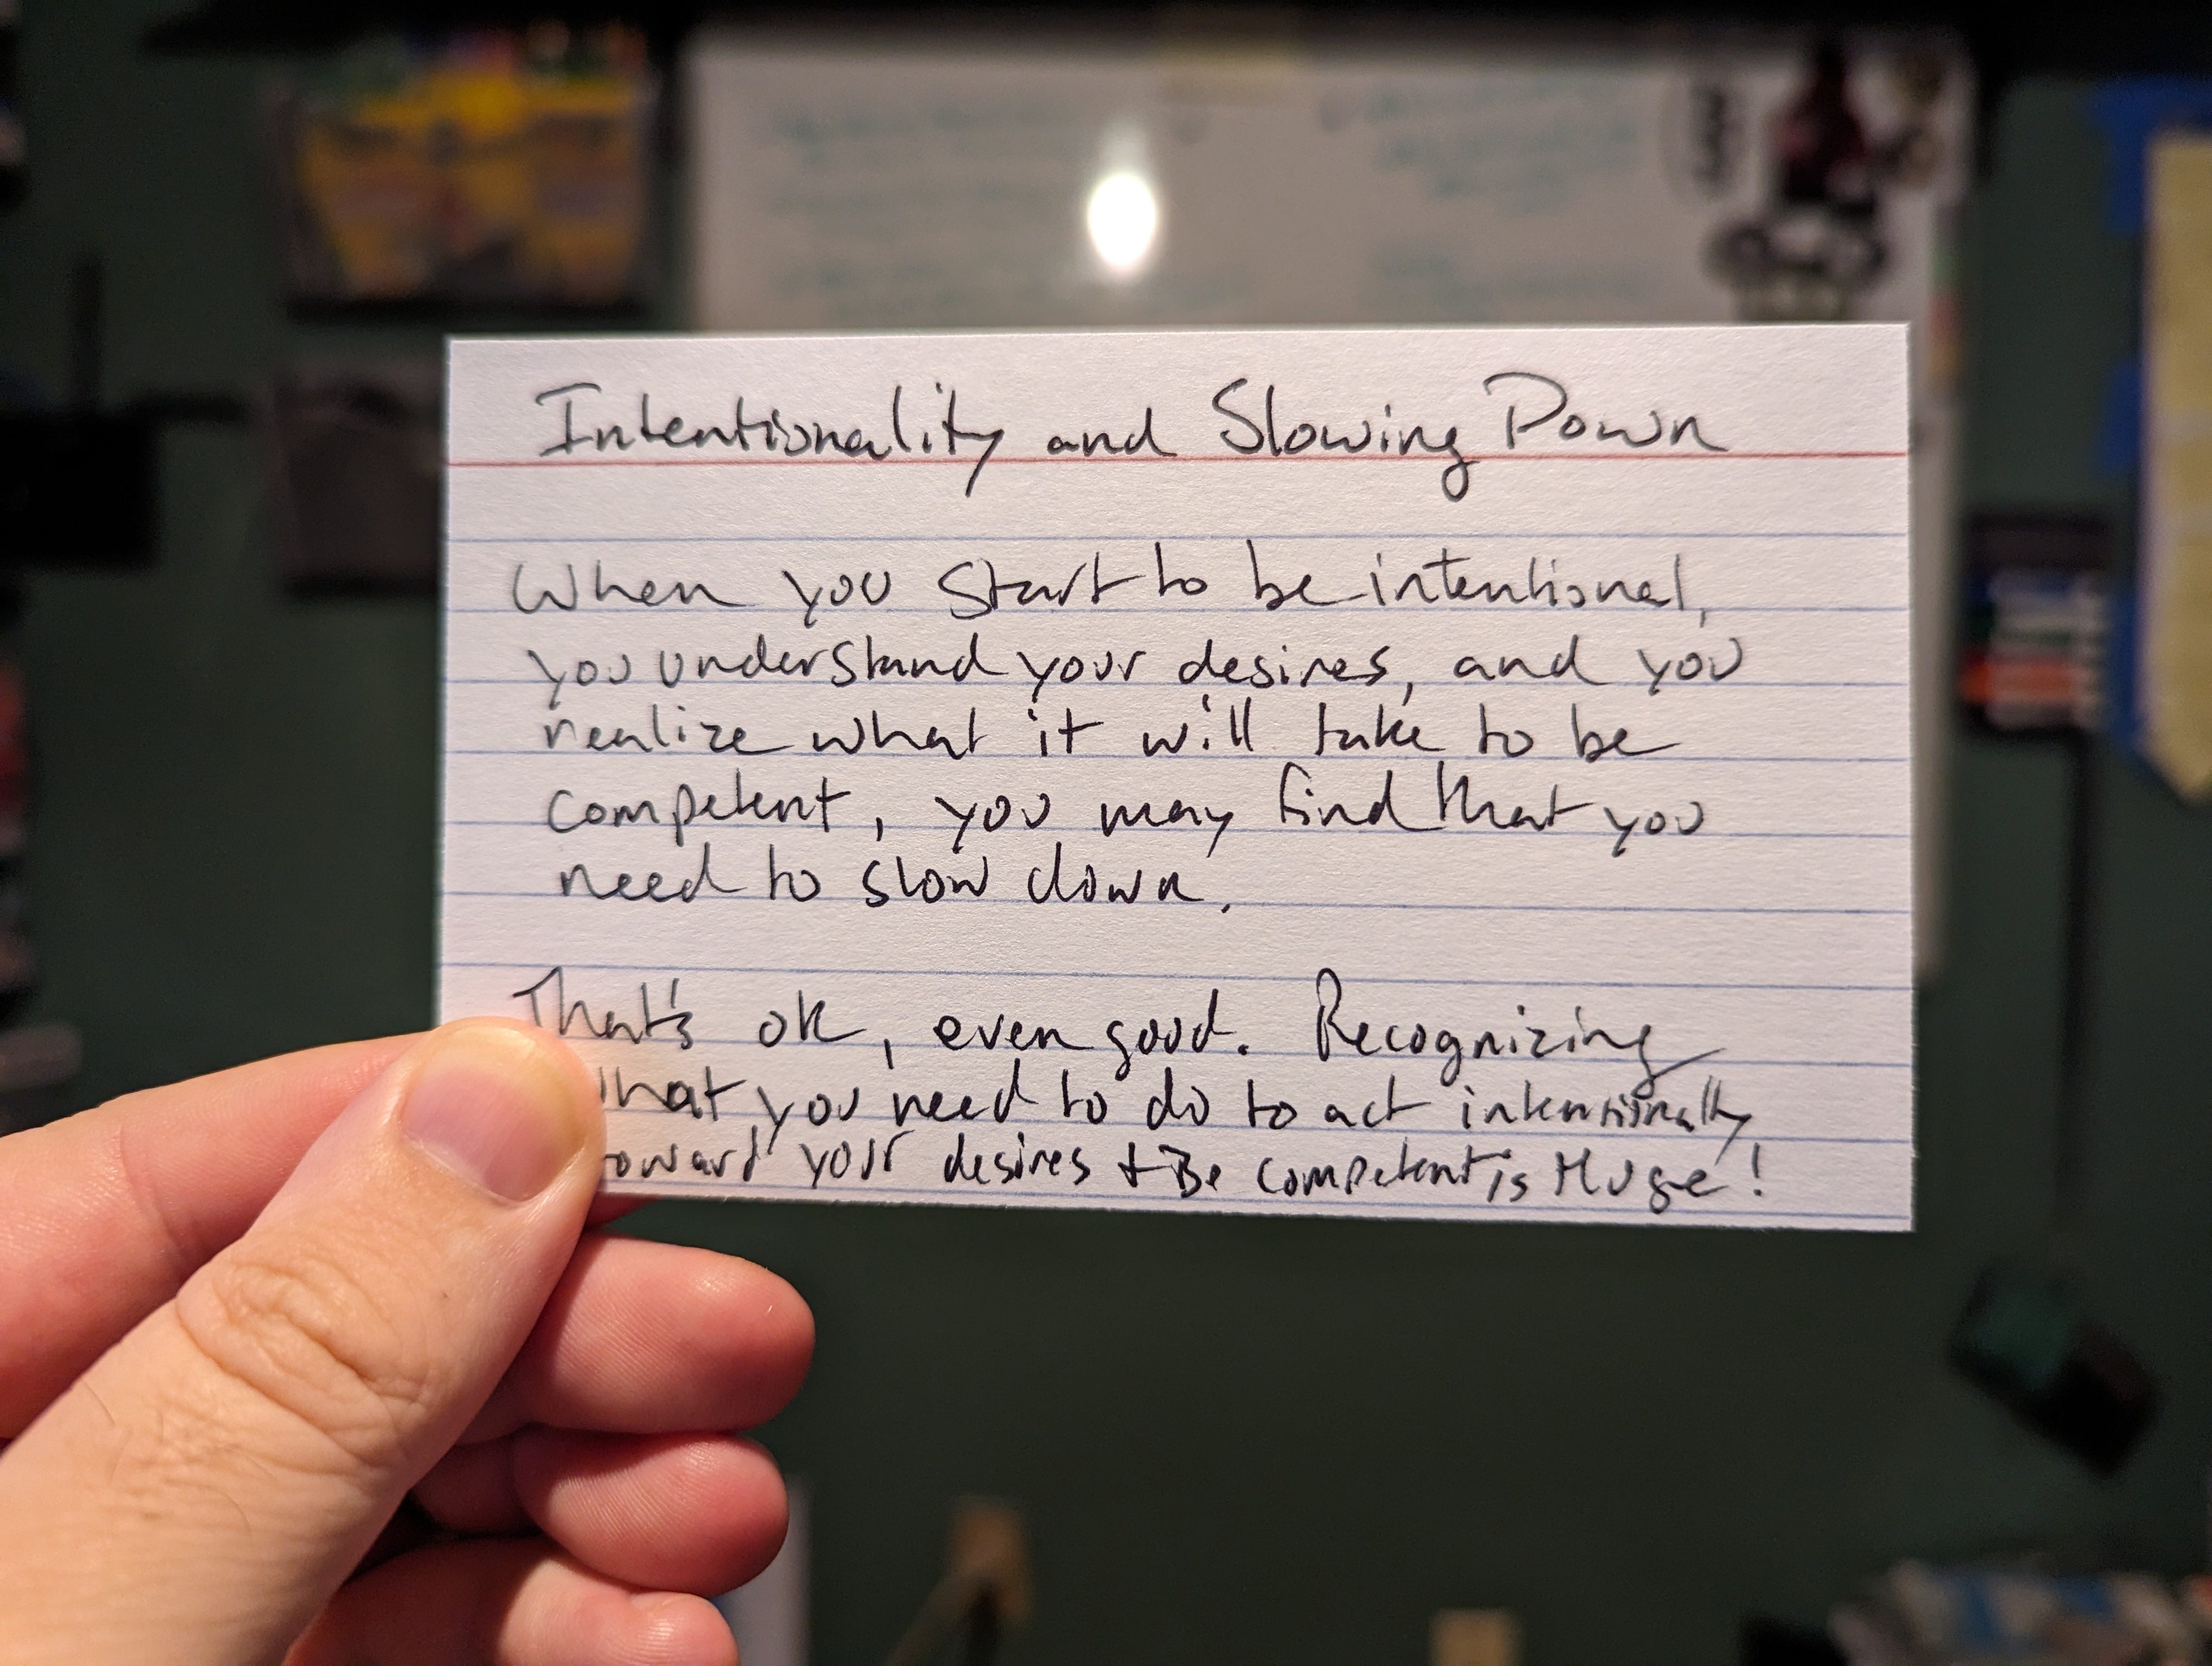 Intentionality and Slowing Down
When you start to be intentional,
you understand your desires, and you
realize what it will take to be
competent, you may find that you
need to slow down.
That's ok, even good. Recognizing
what you need to do to act intentionally
toward your desires + Be competent is Huge!